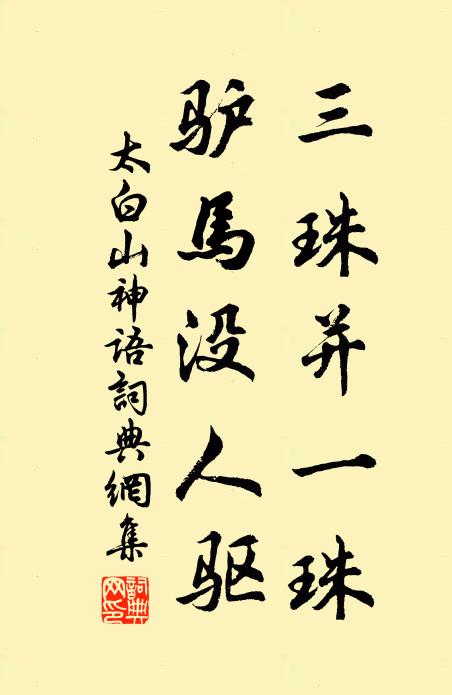 三珠并一珠
驴馬没人驱
太白山神语詞典網集
詞典网印